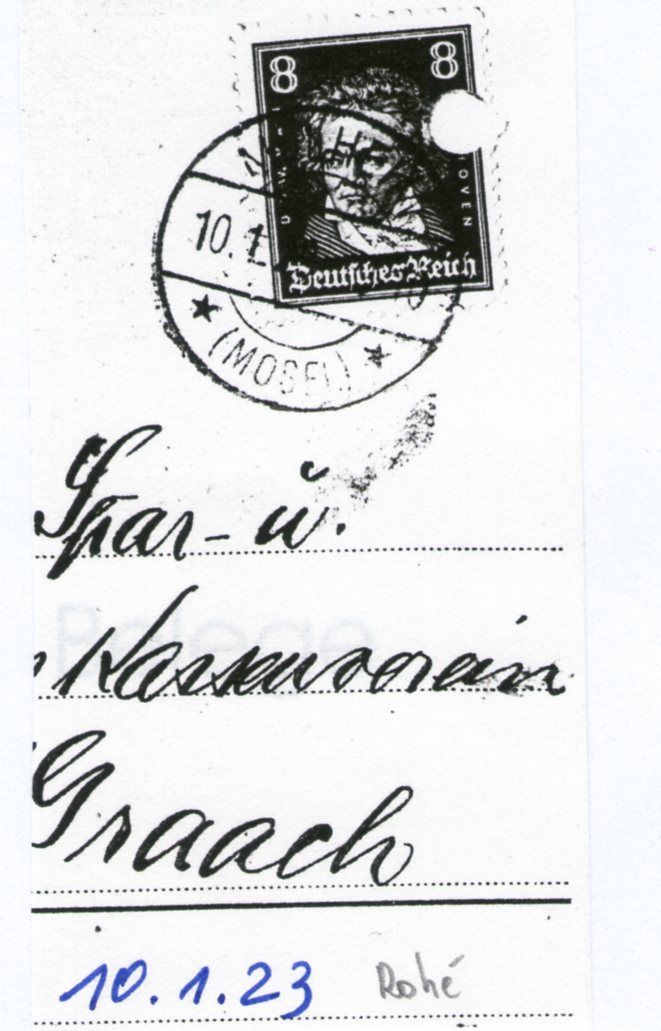 8 8
OVEN
Deutsches Reich
10.1
(MOSEL)
Spar- u.
Kassenverein
Graach
10.1.23 Rohé